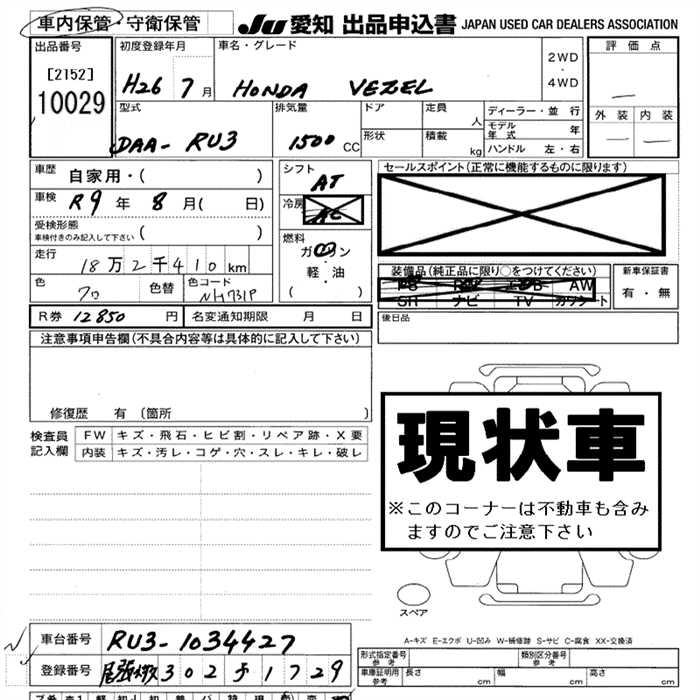 車内保管・守衛保管
JU 愛知 出品申込書 JAPAN USED CAR DEALERS ASSOCIATION
出品番号
[2152]
10029
初度登録年月
H26 7月
車名・グレード
HONDA VEZEL
2WD
・
4WD
評価点
外装 内装
型式
DAA- RU3
排気量
1500 CC
ドア
形状
定員 人
積載 kg
ディーラー・並行
モデル年式 年
ハンドル 左・右
車歴 自家用・( )
車検 R9年 8月( 日)
受検形態
車検付きのみ記入して下さい ( )
走行
18万2千410km
色
クロ
色替
色コード
NH731P
シフト
AT
冷房
AC
燃料
ガソリン
・
軽・油
( )
セールスポイント(正常に機能するものに限ります)
装備品(純正品に限り○をつけてください)
AW
SH ナビ TV カワシート
新車保証書
有・無
R券 12850 円 名変通知期限 月 日
後日品
注意事項申告欄(不具合内容等は具体的に記入して下さい)
修復歴 有 〔箇所 〕
検査員
記入欄
FW キズ・飛石・ヒビ割・リペア跡・X要
内装 キズ・汚レ・コゲ・穴・スレ・キレ・破レ
現状車
※このコーナーは不動車も含み
ますのでご注意下さい
スペア
A-キズ E-エクボ U-凹み W-補修跡 S-サビ C-腐食 XX-交換済
車台番号 RU3-1034427
登録番号 尾張小牧 302 す 1729
形式指定番号
参考
類別区分番号
参考
車庫証明用
参考
長さ cm 幅 cm 高さ cm